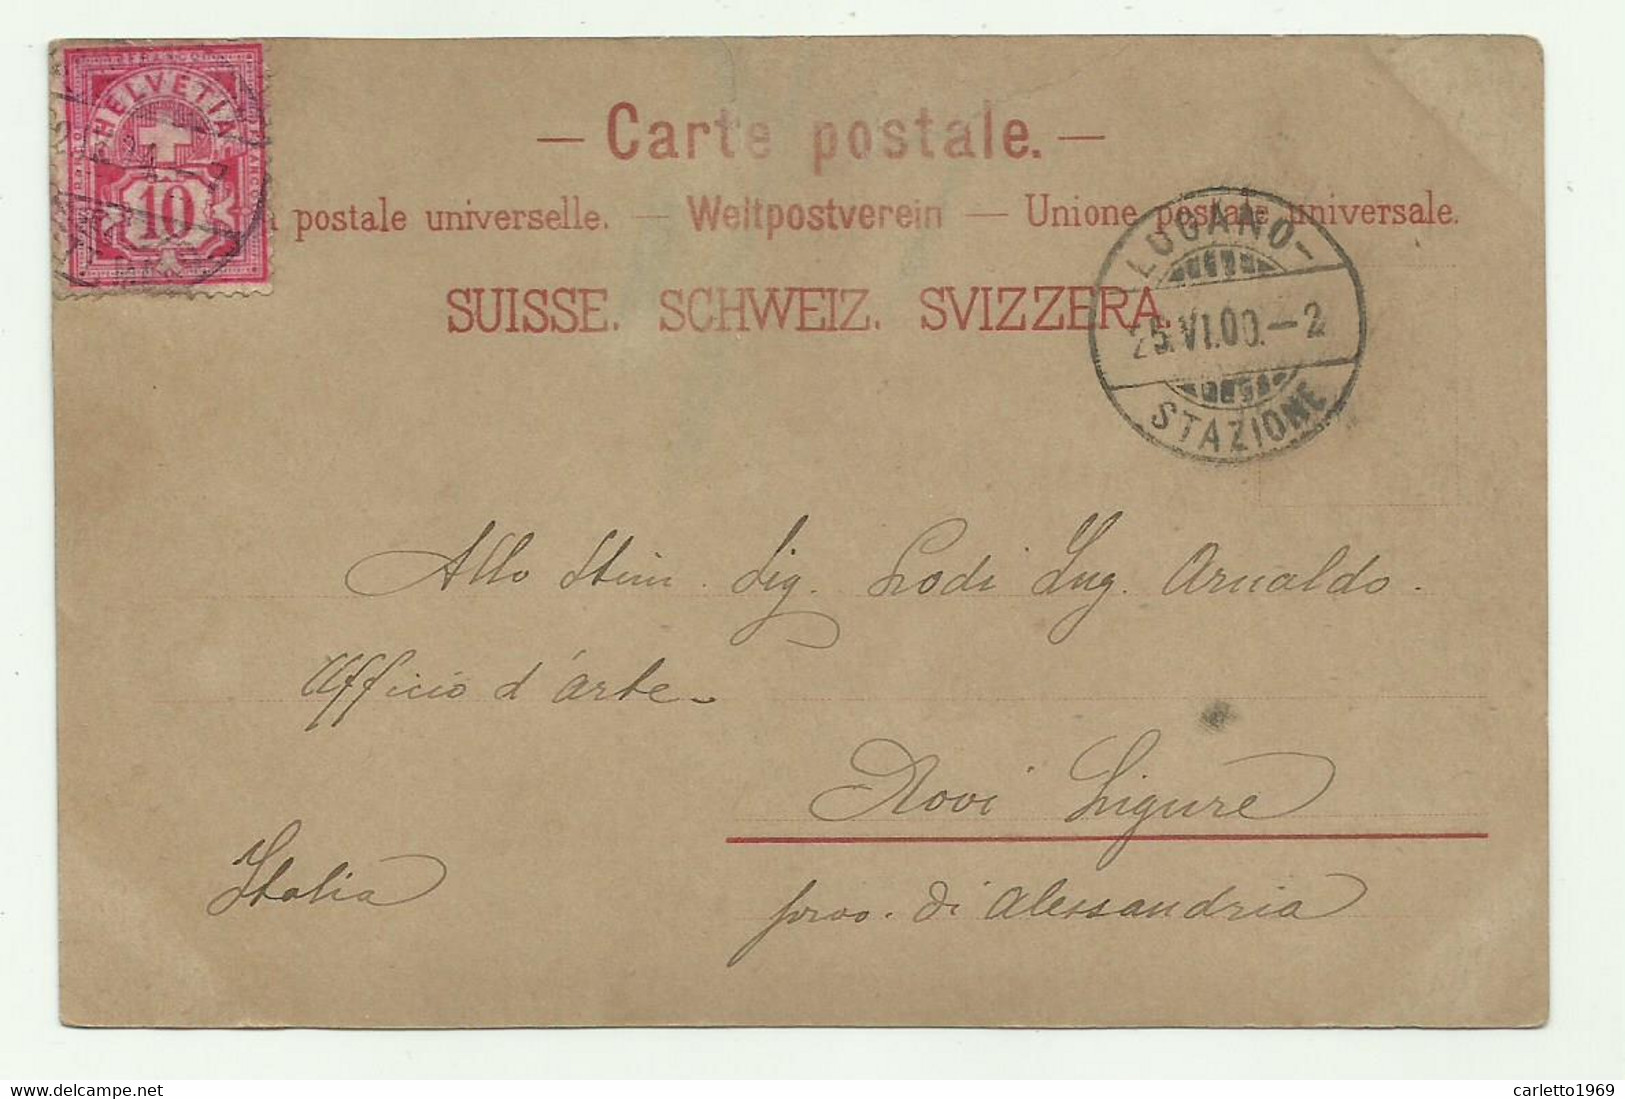 FRANCO
HELVETIA
10
— Carte postale. —
postale universelle. — Weltpostverein — Unione postale universale.
SUISSE. SCHWEIZ. SVIZZERA.
LUGANO-
25.VI.00.-2
STAZIONE
Allo Stim. Sig. Lodi Ing. Arnaldo.
Ufficio d'arte
Novi Ligure
Italia
prov. di Alessandria
carletto1969